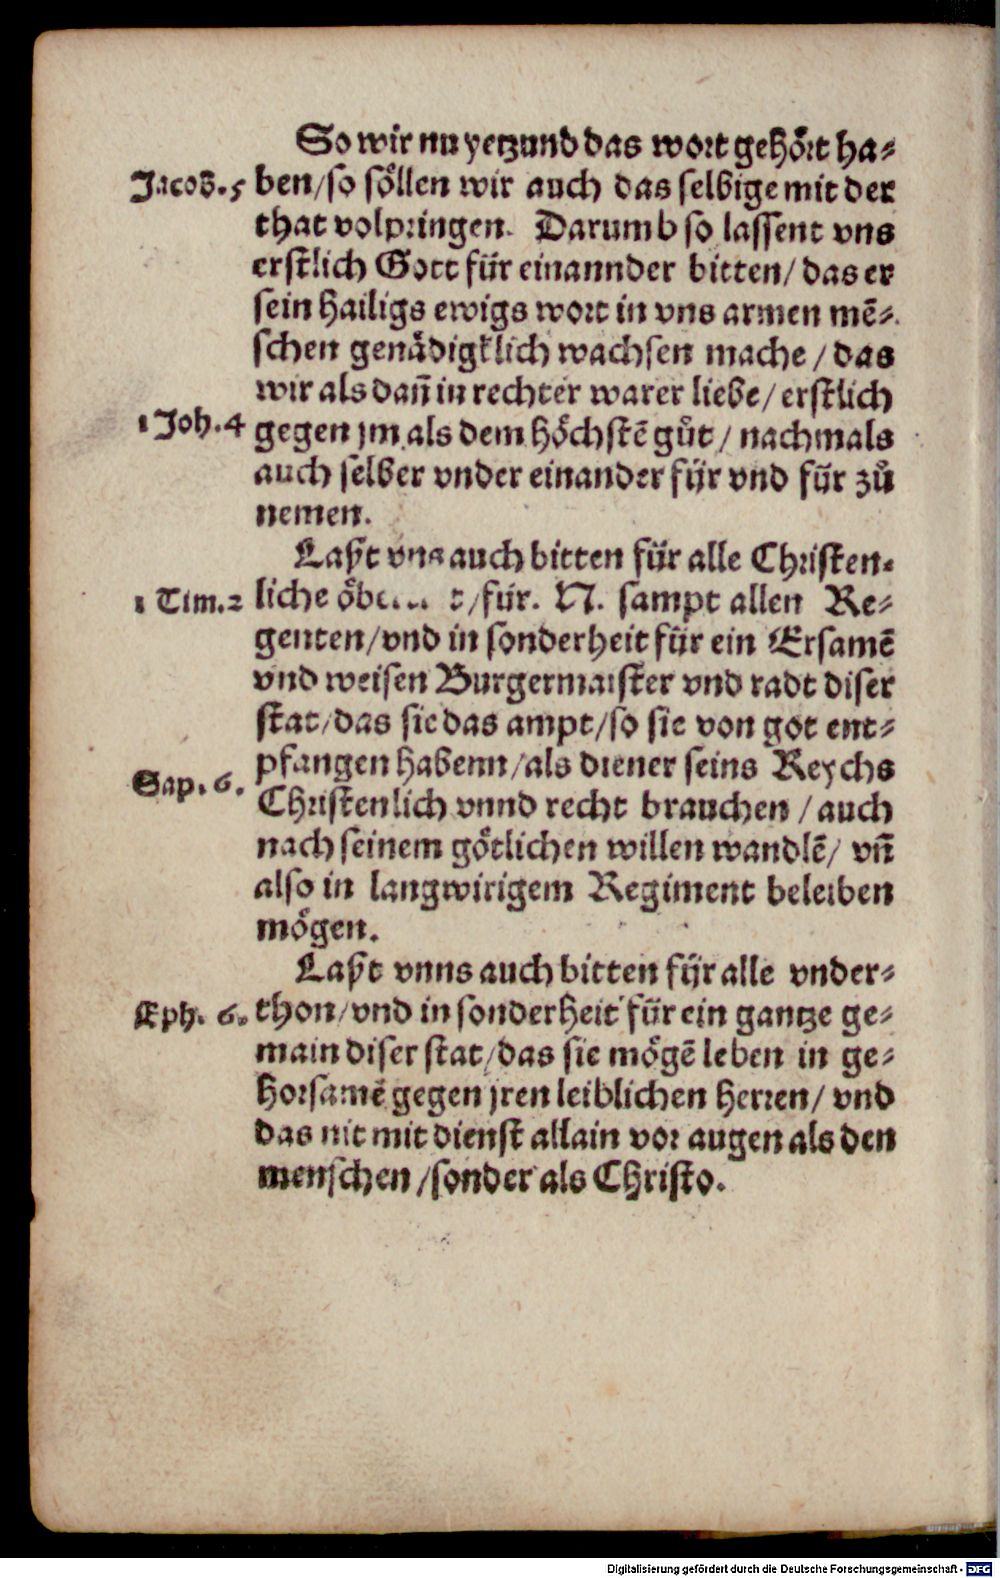 So wir nu yetzund das wort gehört ha-
Jacob. 5
ben/so söllen wir auch das selbige mit der
that volpringen. Darumb so lassent vns
erstlich Gott für einannder bitten/ das er
sein hailigs ewigs wort in vns armen mē-
schen genädigklich wachsen mache / das
wir als dañ in rechter warer liebe/ erstlich
1 Joh. 4
gegen jm als dem höchstē gůt / nachmals
auch selber vnder einander für vnd für zů
nemen.
Laßt vns auch bitten für alle Christen-
1 Tim. 2
liche /für. N. sampt allen Re-
genten/vnd in sonderheit für ein Ersamē
vnd weisen Burgermaister vnd radt diser
stat/das sie das ampt/so sie von got ent-
pfangen habenn/als diener seins Reychs
Sap. 6.
Christenlich vnnd recht brauchen / auch
nach seinem götlichen willen wandlē/ vñ
also in langwirigem Regiment beleiben
mögen.
Laßt vnns auch bitten für alle vnder-
Eph. 6.
thon/vnd in sonderheit für ein gantze ge-
main diser stat/das sie mögē leben in ge-
horsamē gegen jren leiblichen herren/ vnd
das nit mit dienst allain vor augen als den
menschen /sonder als Christo.
Digitalisierung gefördert durch die Deutsche Forschungsgemeinschaft - DFG